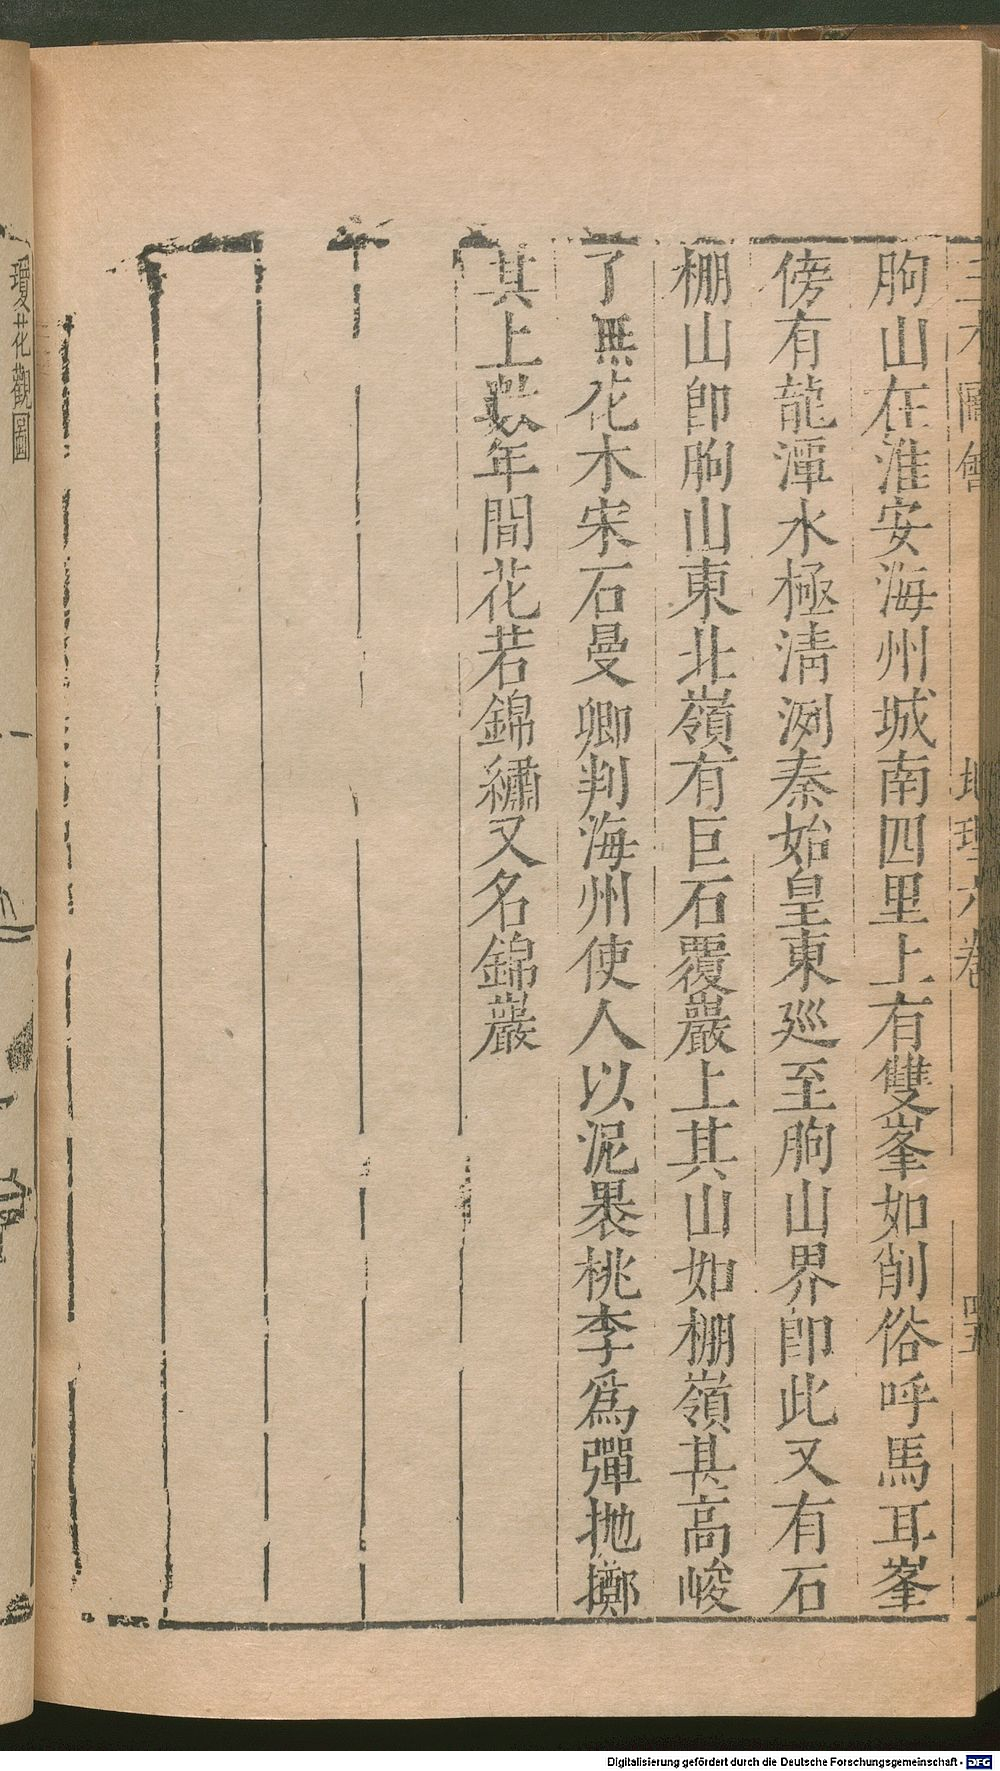 三才圖會 地理六卷 四五
朐山在淮安海州城南四里上有雙峯如削俗呼馬耳峯
傍有龍潭水極淸洌秦始皇東廵至朐山界卽此又有石
棚山卽朐山東北嶺有巨石覆巖上其山如棚嶺甚高峻
了無花木宋石曼卿判海州使人以泥褁桃李爲彈抛擲
其上數年間花若錦繡又名錦巖
瓊花觀圖
Digitalisierung gefördert durch die Deutsche Forschungsgemeinschaft - DFG